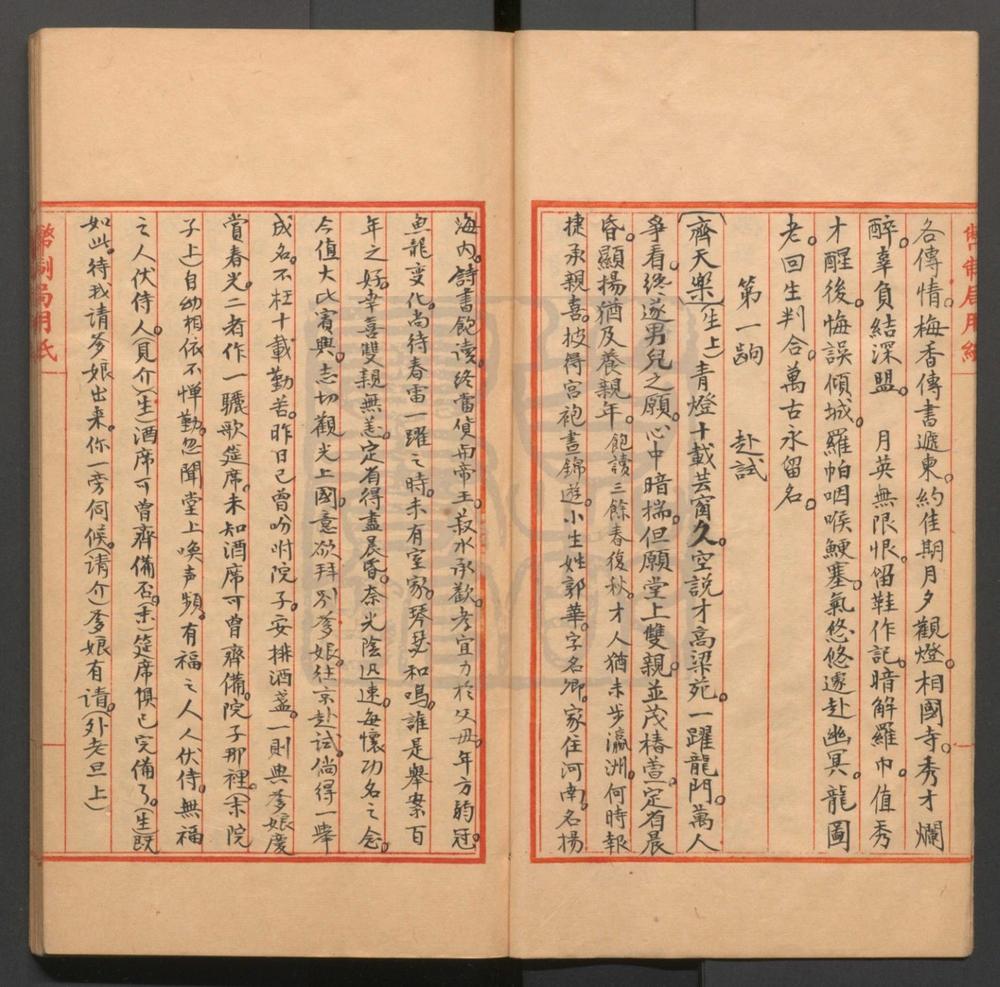 各傳情。梅香傳書遞柬。約佳期月夕觀燈。相國寺。秀才爛
醉。辜負結深盟。　月英無限恨。留鞋作記。暗解羅巾。值秀
才醒後。悔誤傾城。羅帕咽喉鯁塞。氣悠悠遂赴幽冥。龍圖
老。回生判合。萬古永留名。
第一齣　赴試
〔齊天樂〕（生上）青燈十載芸窗久。空説才高梁苑。一躍龍門。萬人
爭看。終遂男兒之願。心中暗揣。但願堂上雙親。並茂椿萱。定省晨
昏。顯揚猶及養親年。飽讀三餘春復秋。才人猶未步瀛洲。何時報
捷承親喜。披得宮袍晝錦遊。小生姓郭華。字名卿。家住河南。名揚
海內。詩書飽讀。終當貨與帝王。菽水承歡。孝宜力於父毋。年方弱冠。
魚龍變化。尚待春雷一躍之時。未有室家。琴瑟和鳴。誰是舉案百
年之好。幸喜雙親無恙。定省得盡晨昏。奈光陰迅速。每懷功名之念。
今值大比賓興。志切觀光上國。意欲拜別爹娘。往京赴試。倘得一舉
成名。不枉十載勤苦。昨日已曾吩咐院子。安排酒筵。一則與爹娘慶
賞春光。二者作一驪歌筵席。未知酒席可曾齊備。院子那裡。（末院
子上）自幼相依不憚勤。忽聞堂上喚声頻。有福之人人伏侍。無福
之人伏侍人。（見介）（生）酒席可曾齊備否。（末）筵席俱已完備了。（生）既
如此。待我請爹娘出来。你一旁伺候。（請介）爹娘有請。（外老旦上）
幣制局用紙